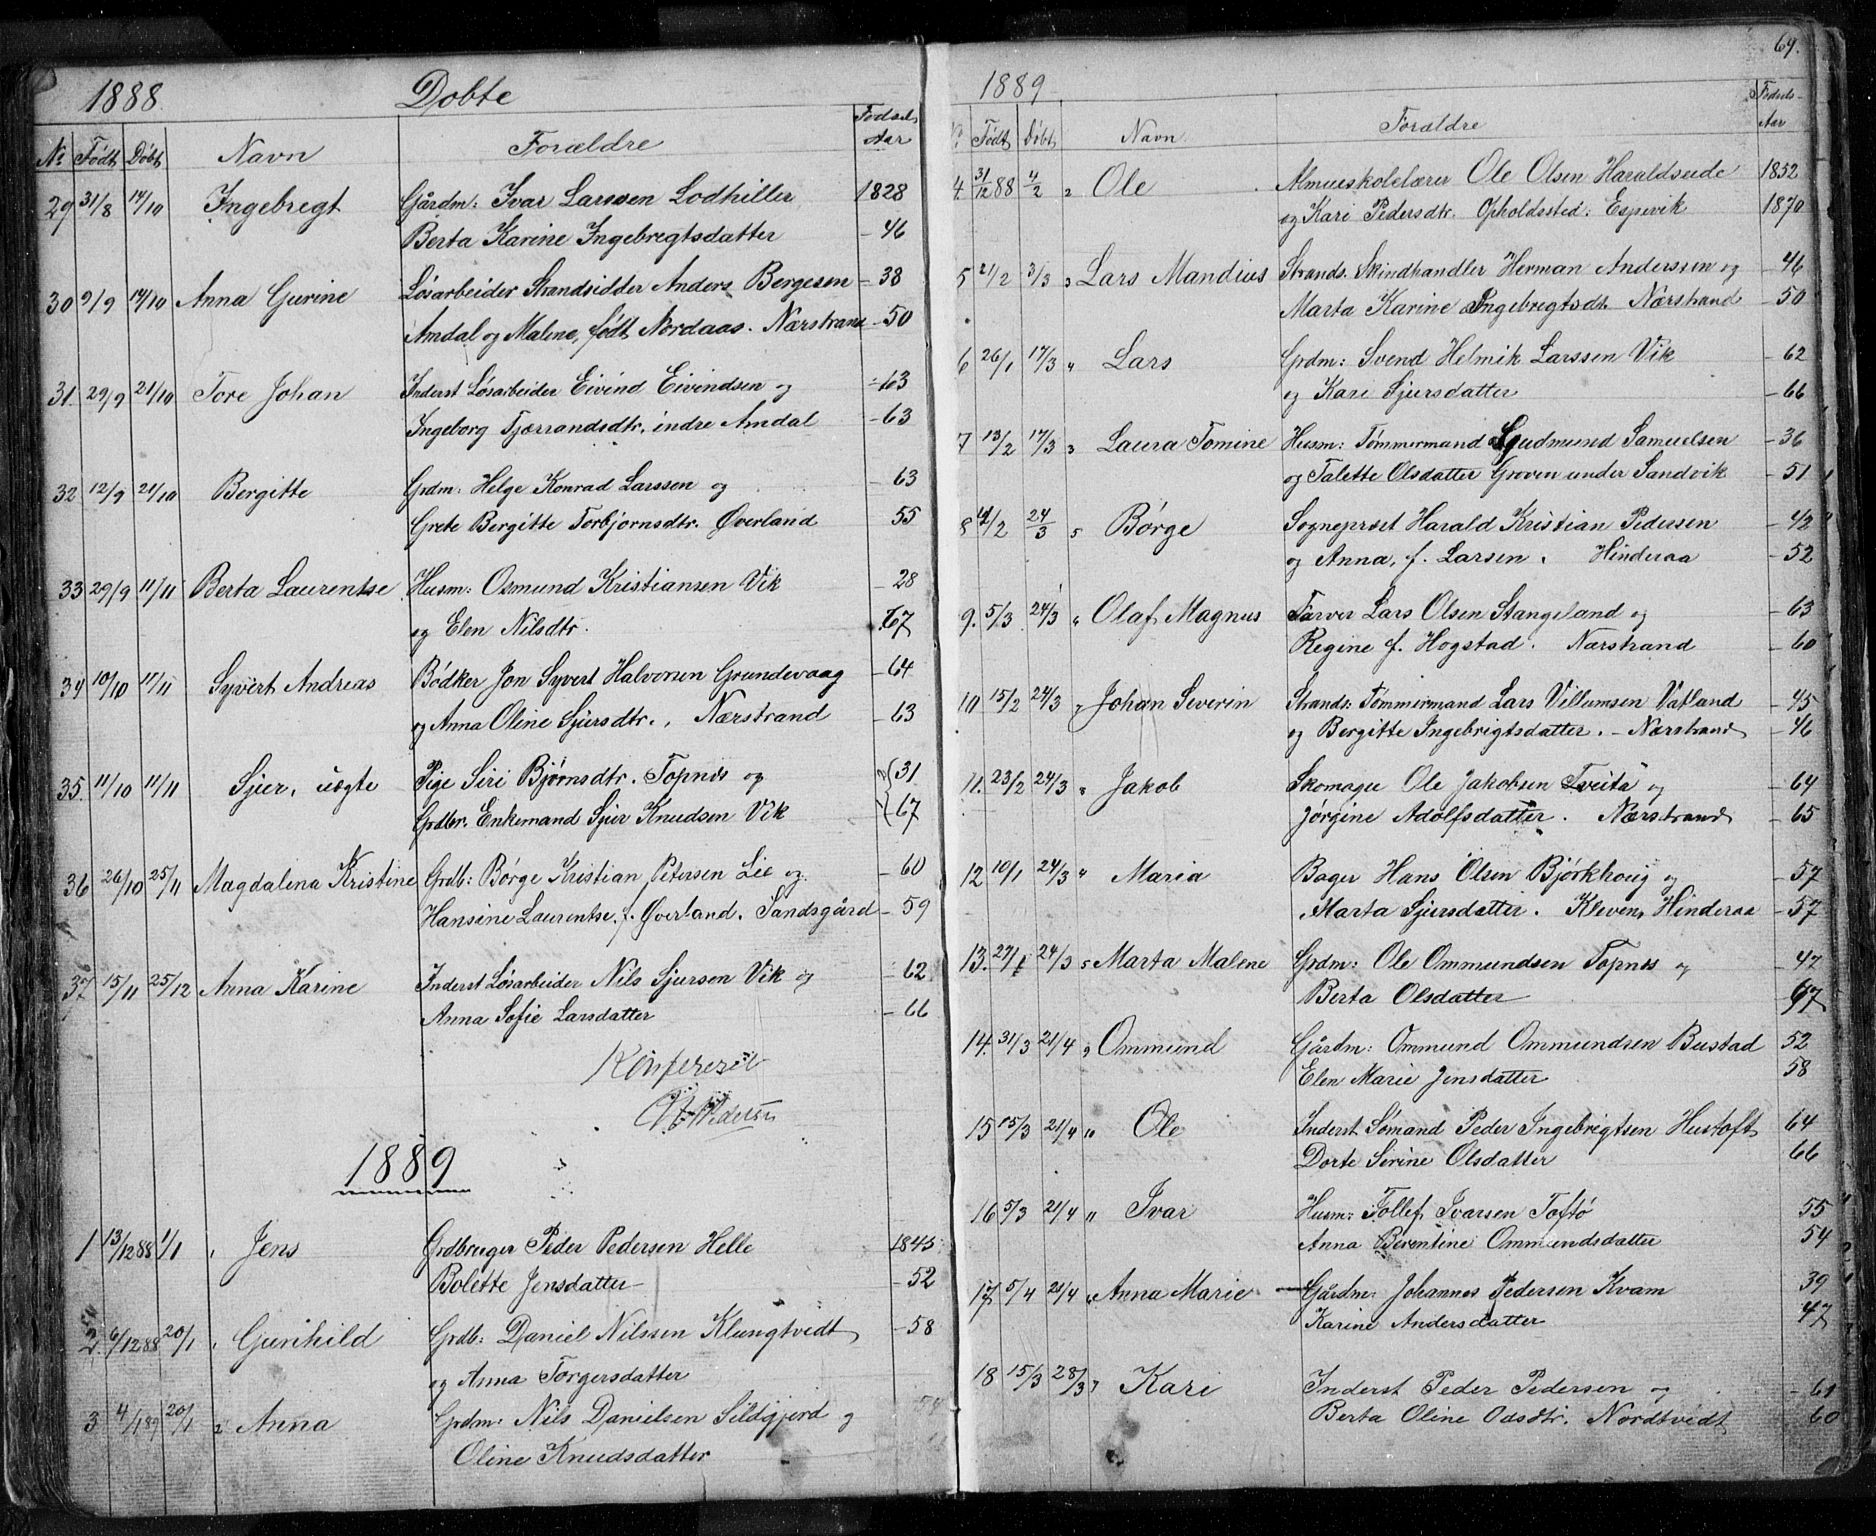 1888 Døbte
No Født Døbt Navn Forældre Fødsels Aar
29 31/8 14/10 Ingebregt Gårdm: Ivar Larssen Lodhiller 1828
Berta Karine Ingebregtsdatter - 46
30 9/9 14/10 Anna Gurine Løsarbeider Strandsidder Anders Bergesen - 38
Amdal og Malene, født Nordaas. Nærstrand - 50
31. 29/9 21/10 Tore Johan Inderst Løsarbeider Eivind Eivindsen og - 63
Ingeborg Tjærrandsdtr. indre Amdal - 63
32 12/9 21/10 Bergitte Grdm: Helge Konrad Larssen og - 63
Grete Bergitte Torbjørnsdtr. Øverland 55
33 29/9 11/11 Berta Laurentse Husm: Osmund Kristiansen Vik - 28
og Elen Nilsdtr. 67
34 10/10 11/11 Syvert Andreas Bødker Jon Syvert Halvorsen Grundevaag - 64
og Anna Oline Sjursdtr., Nærstrand - 63
35. 11/10 11/11 Sjur, uegte Pige Siri Bjørnsdtr. Topnes og 31
Grdbr. Enkemand Sjur Knudsen Vik 67
36 26/10 25/11 Magdalina Kristine Grdb: Børge Kristian Petersen Lie og - 60
Hansine Laurentse, f. Øverland. Sandsgård - 59
37 15/11 25/12 Anna Karine Inderst Løsarbeider Nils Sjursen Vik og - 62
Anna Sofie Larsdatter - 66
Konfereret
HPedersen
1889
1 13/12 88 1/1 Jens Grdbruger Peder Pedersen Helle 1845
Bolette Jensdatter - 52
2. 6/12 88 20/1 Gunhild Grdb: Daniel Nilssen Klungtvedt - 58
og Anna Torgersdatter
3 4/1 89 20/1 Anna Grdm: Nils Danielsen Sildgjerd og
Oline Knudsdatter
69.
1889
No Født Døbt Navn Forældre Fødsels-Aar
4. 31/12 88 4/2 Ole Almueskolelærer Ole Olsen Haraldseide 1852
og Kari Pedersdtr. Opholdssted: Espevik 1870
5 21/2 3/3 Lars Mandius Strands. Skindhandler Herman Anderssen og - 46
Marta Karine Ingebregtsdt. Nærstrand - 50
6 26/1 17/3 " Lars Grdm: Svend Helmik Larssen Vik - 62
og Kari Sjursdatter - 66
7 13/2 17/3 Laura Tomine Husm: Tømmermand Gudmund Samuelsen - 36
og Talette Olsdatter Groven under Sandvik - 51
8 /2 24/3 Børge Sogneprest Harald Kristian Pedersen - 42
og Anna, f. Larsen. Hinderaa - 52
9. 5/3 24/3 " Olaf Magnus Farver Lars Olsen Stangeland og - 63
Regine f. Hogstad. Nærstrand - 60
10 15/2 24/3 " Johan Severin Strands: Tømmermand Lars Villumsen Vatland - 45
og Bergitte Ingebrigtsdatter. - Nærstrand - 46
11. 23/2 24/3 " Jakob Skomager Ole Jakobsen Tveita og - 64
Jørgine Adolfsdatter. Nærstrand - 65
12 10/1 24/3 " Maria Bager Hans Olsen Bjørkhoug og - 57
Marta Sjursdatter. Kleven, Hinderaa - 57
13. 27/1 24/3 Marta Malene Grdm: Ole Ommundsen Topnes og - 47
Berta Olsdatter 47
14. 31/3 21/4 Ommund Gårdm: Ommund Ommundsen Bustad 52
Elen Marie Jensdatter 58
15 15/3 21/4 " Ole Inderst Sømand Peder Ingebrigtsen Hustoft 64
Dorte Serine Olsdatter 66
16 5/3 21/4 " Ivar Husm: Tollef Ivarsen Toftø 55
Anna Berentine Ommundsdatter 54
17 5/4 21/4 " Anna Marie Gårdm: Johannes Pedersen Kvam 39
Karine Andersdatter 47
18 15/3 28/3 Kari Inderst Peder Pedersen og - 61
Berta Oline Odsdtr. Nordtvedt 60